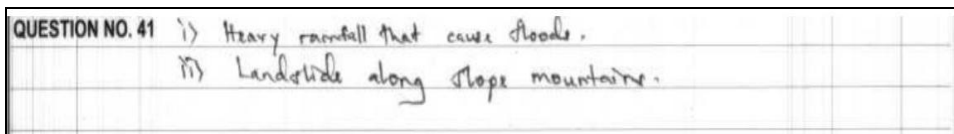 QUESTION NO. 41 i) Heavy rainfall that cause floods.
ii) Landslide along slope mountains.